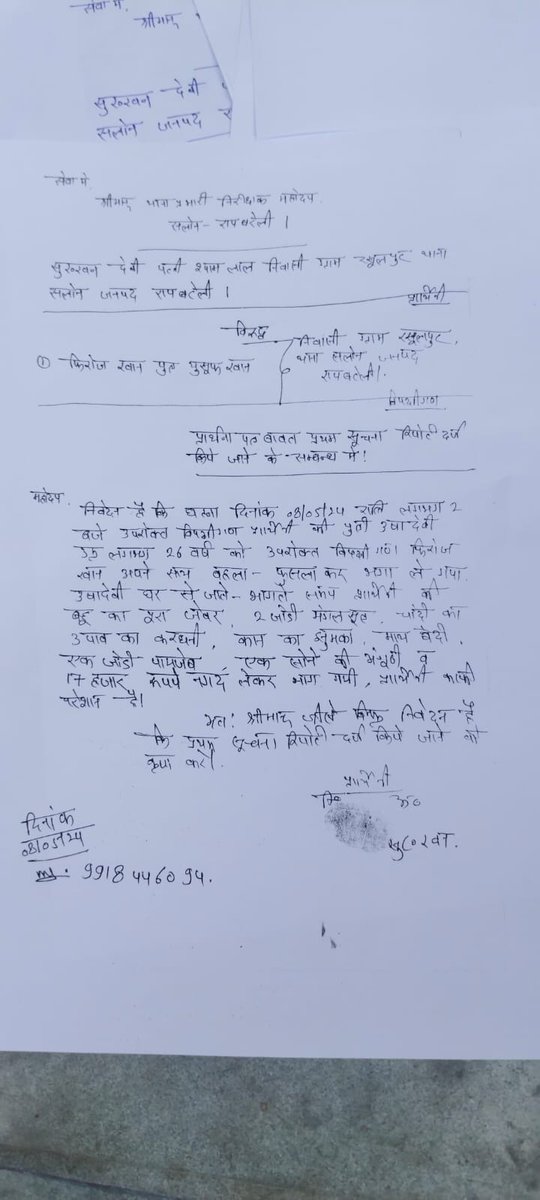 सेवा मे,
श्रीमान्
सुरखन देवी
सलोन जनपद
सेवा मे,
श्रीमान् थाना प्रभारी निरीक्षक महोदय
सलोन - रायबरेली ।
सुरखन देवी पत्नी श्याम लाल निवासी ग्राम रसूलपुर थाना
सलोन जनपद रायबरेली ।
प्रार्थिनी
विरुद्ध
① फिरोज खान पुत्र युसूफ खान
निवासी ग्राम रसूलपुर,
थाना सलोन जनपद
रायबरेली।
विपक्षीगण
प्रार्थना पत्र बावत प्रथम सूचना रिपोर्ट दर्ज
किये जाने के सम्बन्ध में!
महोदय,
निवेदन है कि घटना दिनांक 08/05/24 रात्रि लगभग 2
बजे उपरोक्त विपक्षीगण प्रार्थिनी की पुत्री उषा देवी
उम्र लगभग 26 वर्ष को उपरोक्त विपक्षीगण फिरोज
खान अपने साथ बहला - फुसला कर भगा ले गया
उषादेवी घर से जाते - भागते समय प्रार्थिनी की
बहू का पूरा जेवर, 2 जोडी मंगल सूत्र, चांदी का
का करधनी, कान का झुमका, माथ बेदी,
एक जोडी पायजेब, एक सोने की अंगूठी व
17 हजार रूपये नगद लेकर भाग गयी, प्रार्थिनी काफी
परेशान है।
अतः श्रीमान् जी से निवेदन है
कि प्रथम सूचना रिपोर्ट दर्ज किये जाने की
कृपा करें।
प्रार्थिनी
नि० अं०
दिनांक
08/05/24
सु० खन.
mo. 9918446094.